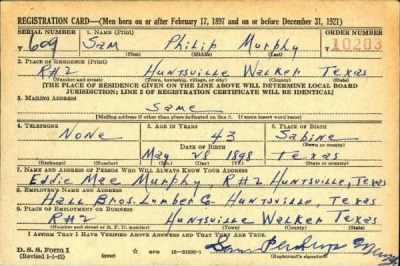 REGISTRATION CARD—(Men born on or after February 17, 1897 and on or before December 31, 1921)
SERIAL NUMBER 1. NAME (Print) ORDER NUMBER
T 609 Sam Philip Murphy 10203
(First) (Middle) (Last)
2. PLACE OF RESIDENCE (Print)
R#2 Huntsville Walker Texas
(Number and street) (Town, township, village, or city) (County) (State)
[THE PLACE OF RESIDENCE GIVEN ON THE LINE ABOVE WILL DETERMINE LOCAL BOARD
JURISDICTION; LINE 2 OF REGISTRATION CERTIFICATE WILL BE IDENTICAL]
3. MAILING ADDRESS
Same
[Mailing address if other than place indicated on line 2. If same insert word same]
4. TELEPHONE 5. AGE IN YEARS 6. PLACE OF BIRTH
None 43 Sabine
DATE OF BIRTH (Town or county)
May 28 1898 Texas
(Exchange) (Number) (Mo.) (Day) (Yr.) (State or country)
7. NAME AND ADDRESS OF PERSON WHO WILL ALWAYS KNOW YOUR ADDRESS
Eddie Mae Murphy, R#2 Huntsville, Texas
8. EMPLOYER'S NAME AND ADDRESS
Hall Bros. Lumber Co. Huntsville, Texas
9. PLACE OF EMPLOYMENT OR BUSINESS
R#2 Huntsville Walker Texas
(Number and street or R. F. D. number) (Town) (County) (State)
I AFFIRM THAT I HAVE VERIFIED ABOVE ANSWERS AND THAT THEY ARE TRUE.
D. S. S. FORM 1
(Revised 1-1-42) (over) GPO Sam